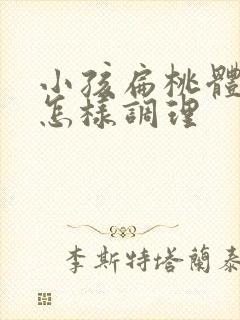 小孩扁桃體
怎樣調理
李斯特塔蘭泰